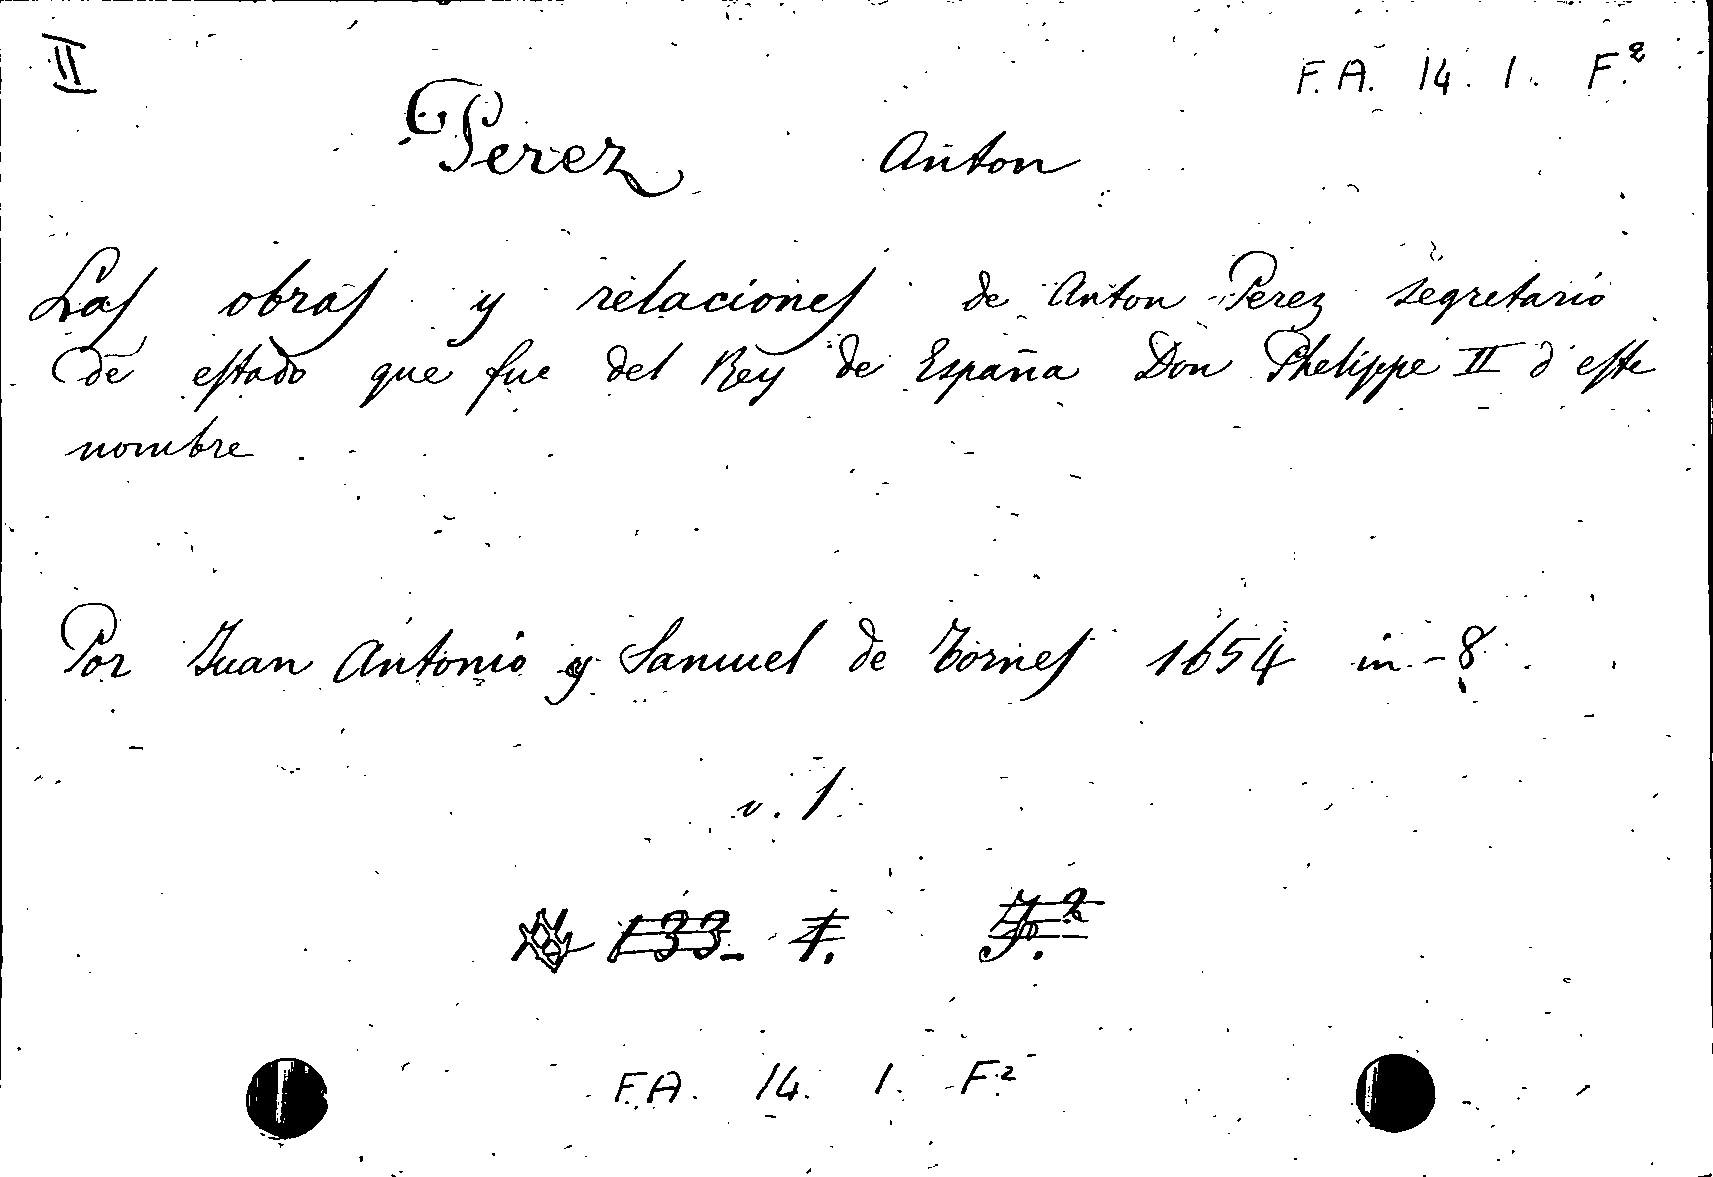 II
F. A. 14. 1. F.2
Perez Anton
Las obras y relaciones de Anton Perez segretario
de estado que fue del Rey de España Don Phelippe II d'este
nombre.
Por Juan Antonio y Samuel de Tornes 1654 in-8.
v. 1
133-4. F.2
F.A. 14. 1. F.2